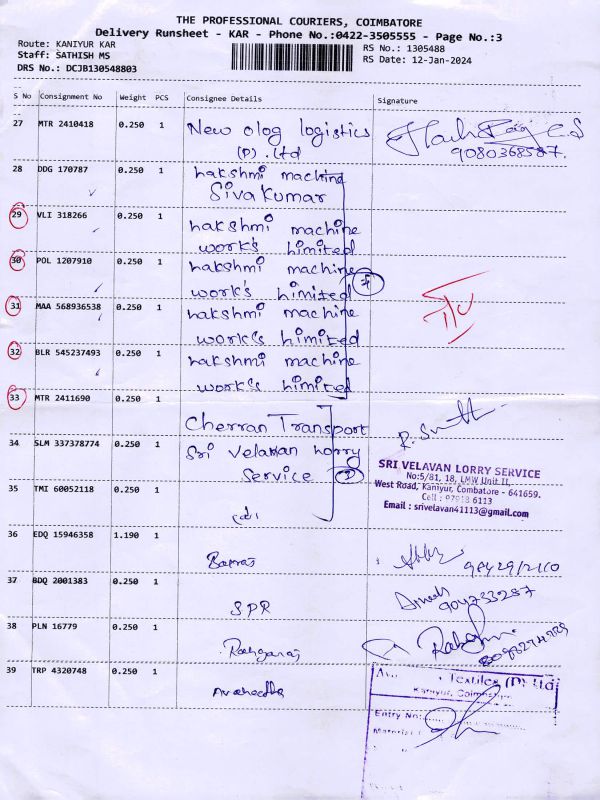 THE PROFESSIONAL COURIERS, COIMBATORE
Delivery Runsheet - KAR - Phone No.:0422-3505555 - Page No.:3
Route: KANIYUR KAR
RS No.: 1305488
Staff: SATHISH MS
RS Date: 12-Jan-2024
DRS No.: DCJB130548803
S No Consignment No Weight PCS Consignee Details Signature
27 MTR 2410418 0.250 1 New olog logistics
(P) .Ltd
9080368587.
28 DDG 170787 0.250 1 hakshmi machine
Siva Kumar
29 VLI 318266 0.250 1 hakshmi machine
work's himited
30 POL 1207910 0.250 1 hakshmi machine
work's himited
31 MAA 568936538 0.250 1 hakshmi machine
work's himited
32 BLR 545237493 0.250 1 hakshmi machine
work's himited
33 MTR 2411690 0.250 1
Cherran Transport
34 SLM 337378774 0.250 1 Sri velavan lorry
Service
SRI VELAVAN LORRY SERVICE
No:5/81, 18, LMW Unit II,
West Road, Kaniyur, Combatore - 641659.
Cell : 6113
Email : srivelavan41113@gmail.com
35 TMI 60052118 0.250 1
36 EDQ 15946358 1.190 1
37 BDQ 2001383 0.250 1
SPR
38 PLN 16779 0.250 1
39 TRP 4320748 0.250 1
Textiles (P) Ltd
Kaniyur, Coimbatore
Entry No: